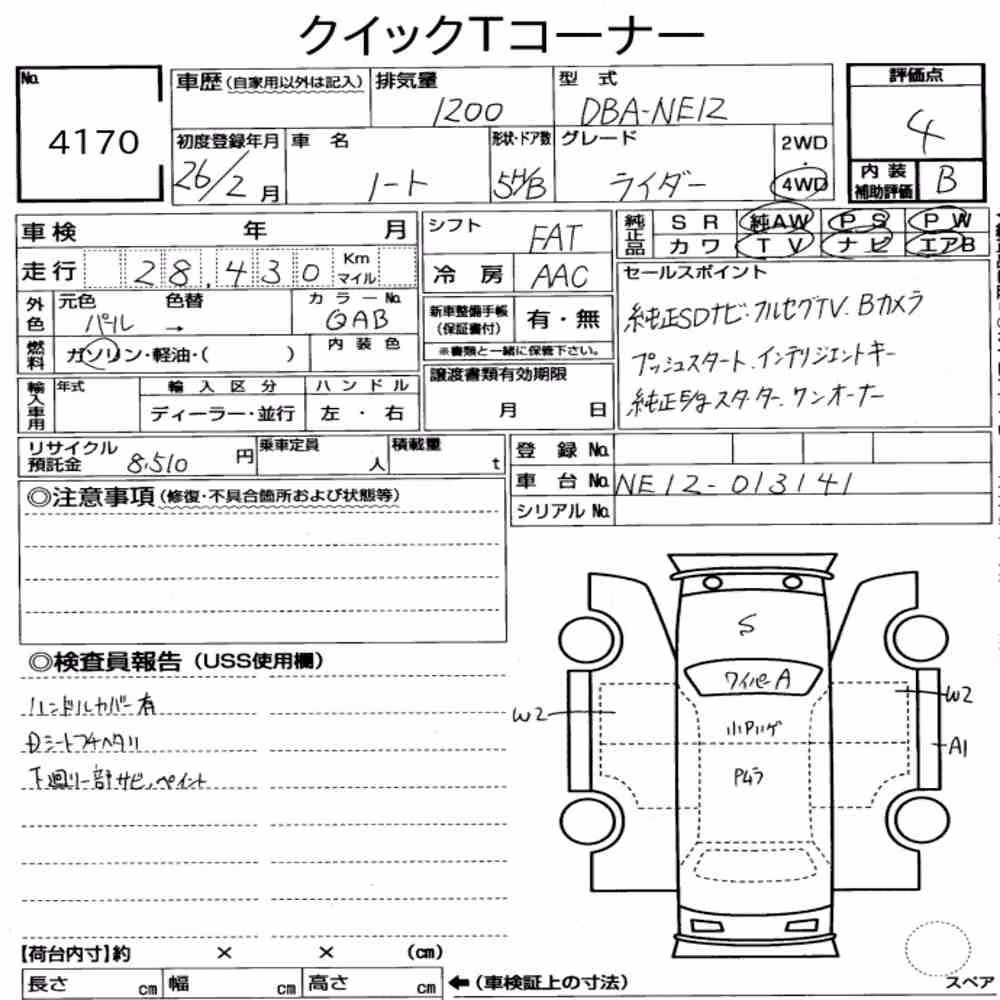 クイックTコーナー
No. 4170
車歴(自家用以外は記入)
排気量 1200
型式 DBA-NE12
評価点 4
初度登録年月 26/2月
車名 ノート
形状・ドア数 5H/B
グレード ライダー
2WD・4WD
内装補助評価 B
車検 年 月
走行 28,430 Km マイル
シフト FAT
冷房 AAC
純正品 SR 純AW PS PW
カワ TV ナビ エアB
外色 元色 パール → 色替 カラーNo. QAB
燃料 ガソリン・軽油・( ) 内装色
新車整備手帳(保証書付) 有・無
※書類と一緒に保管下さい。
セールスポイント
純正SDナビ・フルセグTV、Bカメラ
プッシュスタート、インテリジェントキー
純正Engスターター、ワンオーナー
輸入車用 年式 輸入区分 ハンドル
ディーラー・並行 左・右
譲渡書類有効期限
月 日
リサイクル預託金 8,510円
乗車定員 人
積載量 t
登録No.
車台No. NE12-013141
シリアルNo.
◎注意事項(修復・不具合箇所および状態等)
◎検査員報告(USS使用欄)
ハンドルカバー有
Dシートフチヘタリ
下廻リ一部サビ、ペイント
S
ワイパーA
W2
W2
小Pハゲ
Pムラ
A1
【荷台内寸】約 × × (cm)
長さ cm 幅 cm 高さ cm ←(車検証上の寸法)
スペア